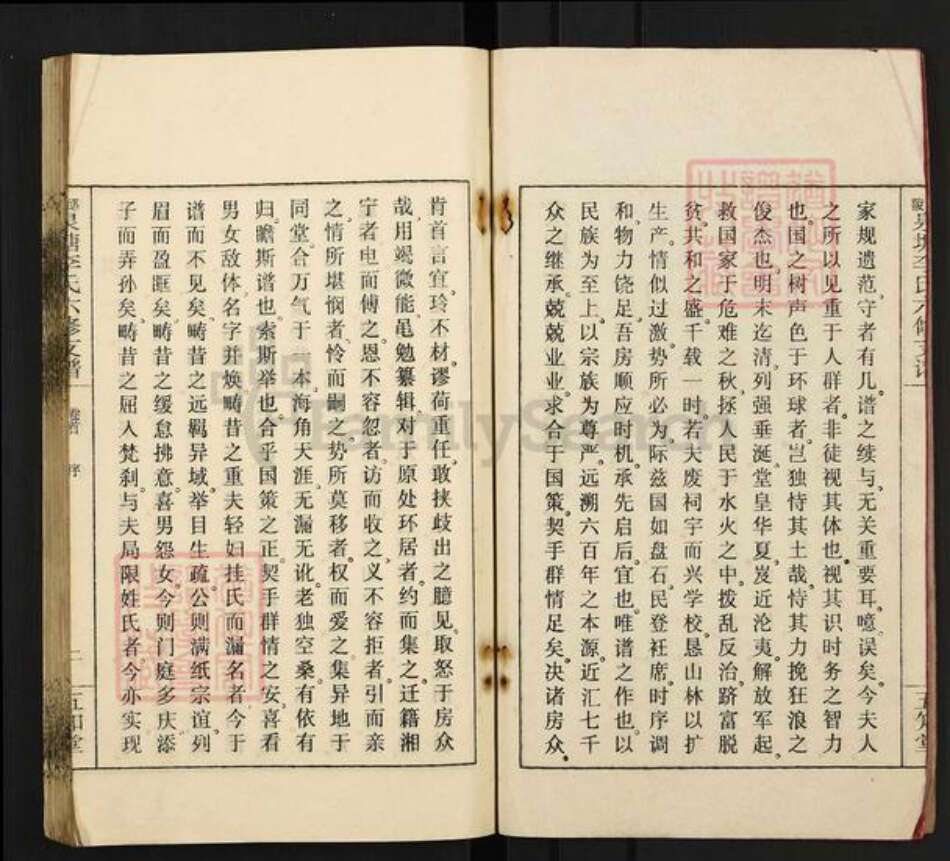 家规遗范。守者有几。谱之续与。无关重要耳。噫。误矣。今夫人
之所以见重于人群者。非徒视其体也。视其识时务之智力
也。国之树声色于环球者。岂独恃其土哉。恃其力挽狂浪之
俊杰也。明末迄清。列强垂涎。堂皇华夏。岌近沦夷。解放军起。
救国家于危难之秋。拯人民于水火之中。拨乱反治。跻富脱
贫。共和之盛。千载一时。若夫废祠宇而兴学校。恳山林以扩
生产。情似过激。势所必为。际兹国如盘石。民登衽席。时序调
和。物力饶足。吾房顺应时机。承先启后。宜也。唯谱之作也。以
民族为至上。以宗族为尊严。远溯六百年之本源。近汇七千
众之继承。兢兢业业。求合于国策。契乎群情足矣。决诸房众。
肯首言宜。玲不材。谬荷重任。敢挟歧出之臆见。取怒于房众
哉。用竭微能。黾勉纂辑。对于原处环居者。约而集之。迁籍湘
宁者。电而傅之。恩不容忽者。访而收之。义不容拒者。引而亲
之。情所堪悯者。怜而嗣之。势所莫移者。权而爱之。集异地于
同堂。合万气于一本。海角天涯。无漏无讹。老独空桑。有依有
归。瞻斯谱也。索斯举也。合乎国策之正。契乎群情之安。喜看
男女敌体。名字并焕。畴昔之重夫轻妇。挂氏而漏名者。今于
谱而不见矣。畴昔之远羁异域。举目生疏。公则满纸宗谊。列
眉而盈眶矣。畴昔之缓怠拂意。喜男怨女。今则门庭多庆。添
子而弄孙矣。畴昔之屈入梵刹。与夫局限姓氏者。今亦实现
泉塘李氏六修支谱
卷首
序
一
五知堂